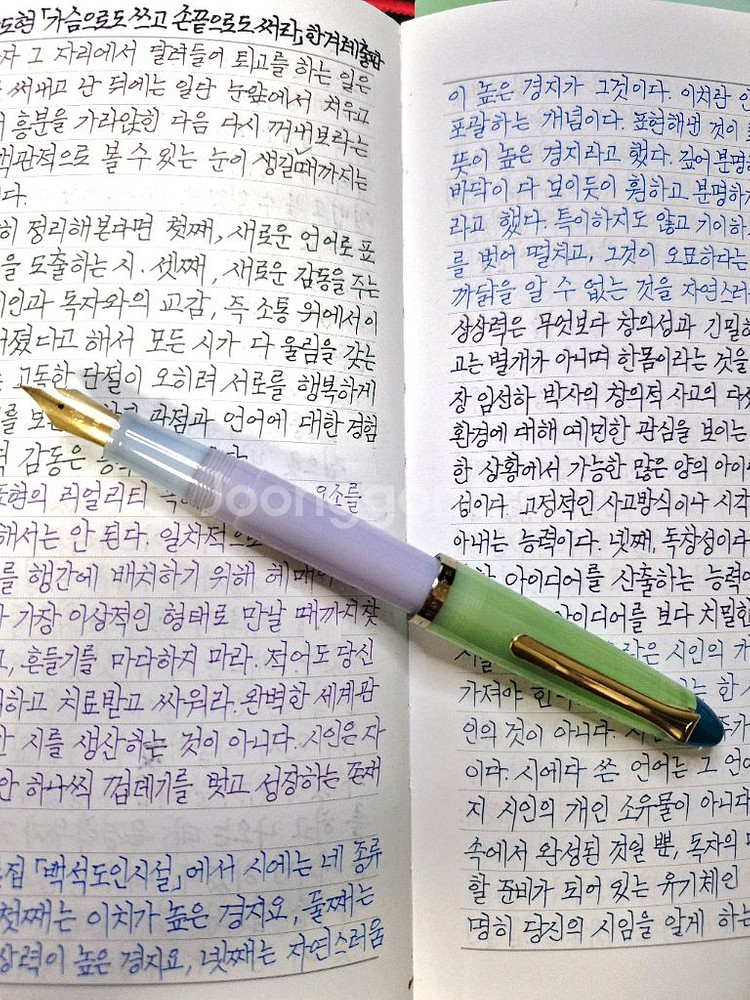 도현 「가슴으로도 쓰고 손끝으로도 써라」, 한겨레출판
자 그 자리에서 달려들어 퇴고를 하는 일은
써내고 난 뒤에는 일단 눈앞에서 치우고
흥분을 가라앉힌 다음 다시 꺼내보라는
객관적으로 볼 수 있는 눈이 생길때까지는
다.
히 정리해본다면 첫째, 새로운 언어로 표
을 도출하는 시. 셋째, 새로운 감동을 주는
인과 독자와의 교감, 즉 소통 위에서 이
어졌다고 해서 모든 시가 다 울림을 갖는
고독한 단절이 오히려 서로를 행복하게
를 관점과 언어에 대한 경험
감동은
표현의 리얼리티 요소를
해서는 안 된다. 일차적으로
를 행간에 배치하기 위해
가장 이상적인 형태로 만날 때까지 찾
고, 흔들기를 마다하지 마라. 적어도 당신
하고 치료받고 싸워라. 완벽한 세계관
시를 생산하는 것이 아니다. 시인은 자
하나씩 껍데기를 벗고 성장하는 존재
「백석도인시설」에서 시에는 네 종류
첫째는 이치가 높은 경지요, 둘째는
상력이 높은 경지요, 넷째는 자연스러움
이 높은 경지가 그것이다. 이치란
포괄하는 개념이다. 표현해낸 것이
뜻이 높은 경지라고 했다. 깊어 분명하
바닥이 다 보이듯이 훤하고 분명하
라고 했다. 특이하지도 않고 기이하
를 벗어 떨치고, 그것이 오묘하다는
까닭을 알 수 없는 것을 자연스러
상상력은 무엇보다 창의성과 긴밀하
고는 별개가 아니며 한몸이라는 것을
장 임선하 박사의 창의적 사고의 다섯
환경에 대해 예민한 관심을 보이는
한 상황에서 가능한 많은 양의 아이
성이다. 고정적인 사고방식이나 시각
아내는 능력이다. 넷째, 독창성이다
아이디어를 산출하는 능력이
아이디어를 보다 치밀한
은 시인의 가
가져야 한 는 한
인의 것이 아니다.
이다. 시에다 쓴 언어는 그 언어
지 시인의 개인 소유물이 아니다
속에서 완성된 것일 뿐, 독자의
할 준비가 되어 있는 유기체인
명히 당신의 시임을 알게 하는